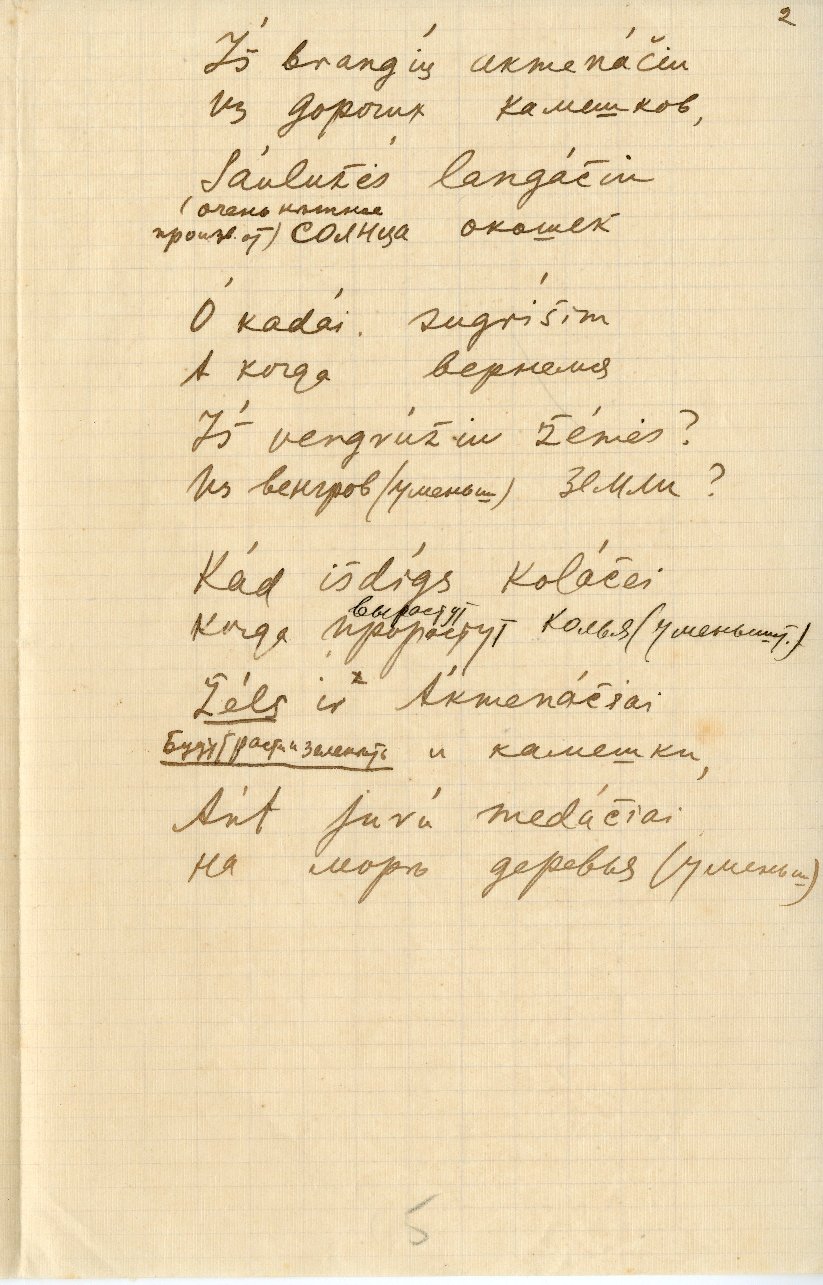 2
Iš brangių akmenáčiu
Из дорогих камешков,
Sáulužės langáčiu
(очень нежное
произв. от) СОЛНЦА окошек
Ó kadái sugrį́šim
А когда вернемся
Iš vengrúžiu žémės?
Из венгров (уменьш) земли?
Kád išdígs koláčei
вырастут
Когда прорастут колья (уменьшит.)
Žéls ir Ákmenáčiai
Будут расти и зеленеть и камешки,
Ánt jurú medáčiai
На море деревья (уменьш)
5